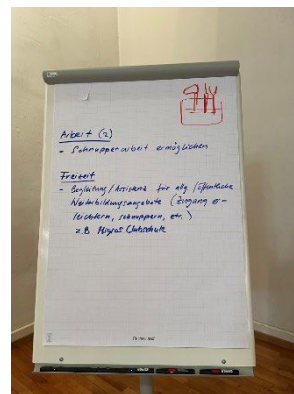 Arbeit (2)
- Schnupperarbeit ermöglichen
Freizeit
- Begleitung/Assistenz für allg/öffentliche
Weiterbildungsangebote (Zugang er-
leichtern, schnuppern, etc.)
z.B Migros Clubschule